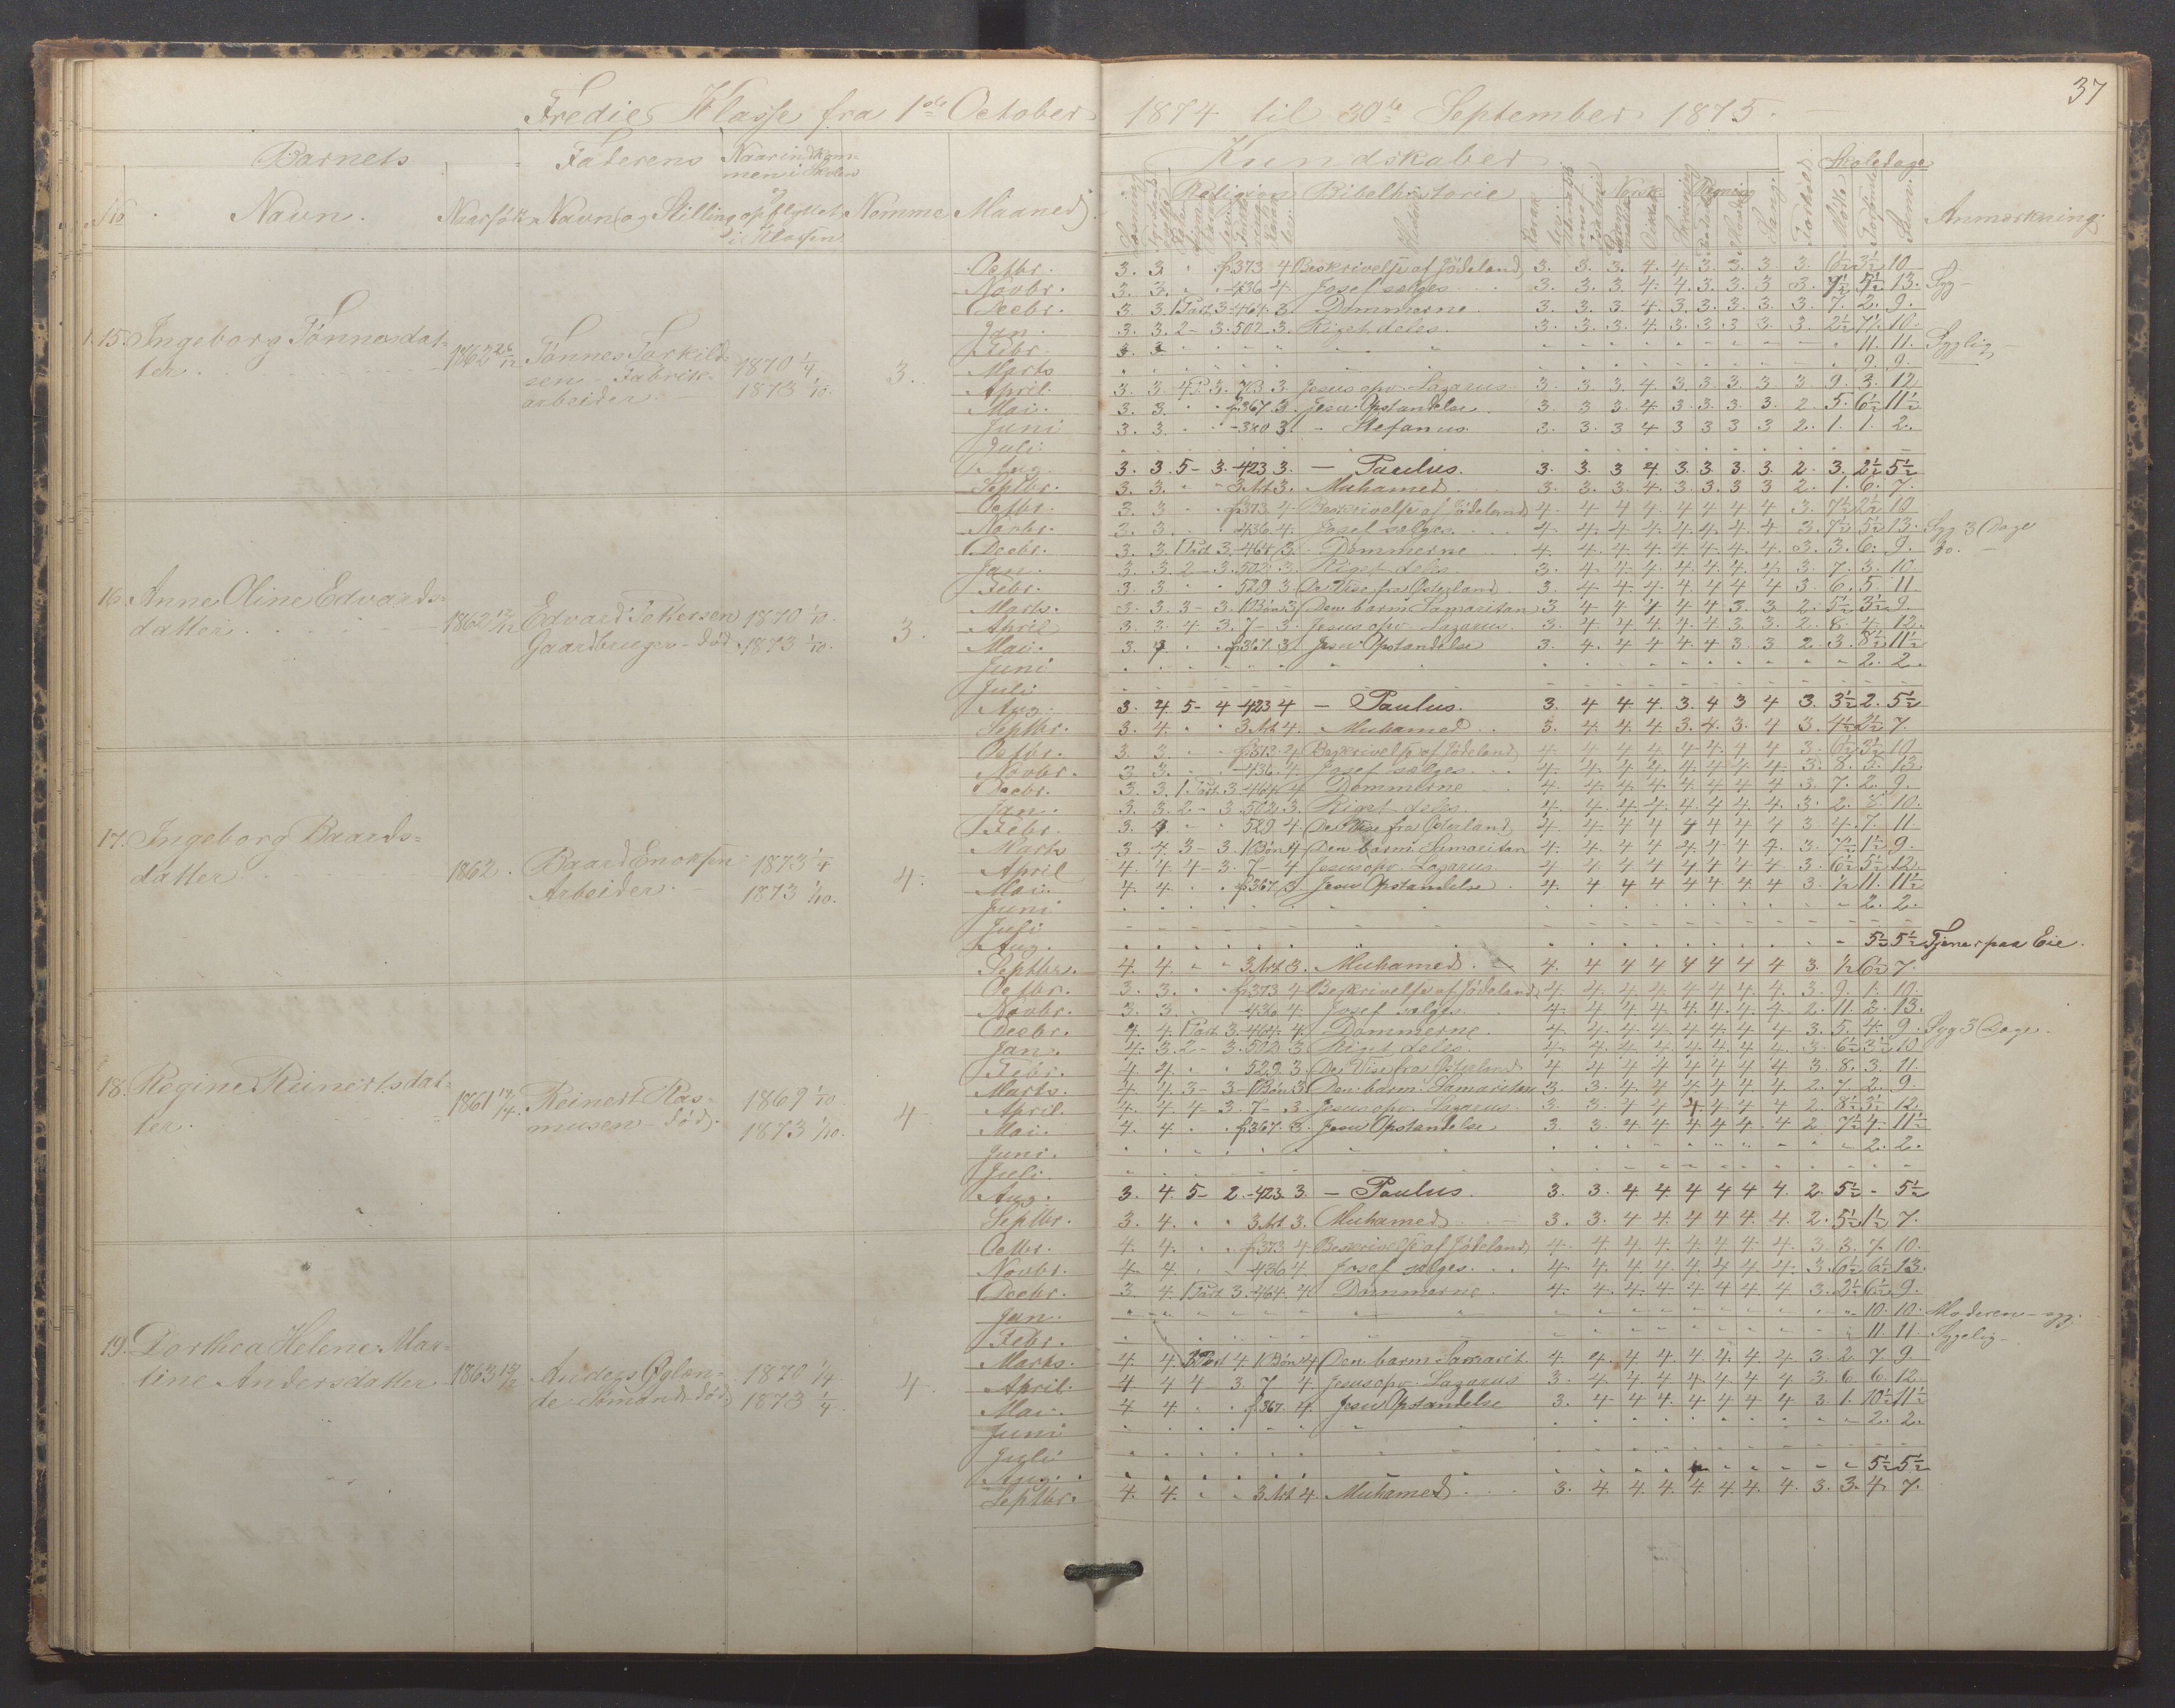 37
Tredie Klasse fra 1ste October 1874 til 30te September 1875.
Barnets Faderens Naarindkommen i Skolen Kundskaber Skoledage
No Navn. Naarfödt Navn og Stilling og opflyttet i Klassen Nemme Maaned Religion Bibelhistorie Norsk Regning Sang. Forhold Mödte Forsömte Sum Anmærkning.
15. Ingeborg Tönnesdatter 1862 26/12 Tönnes Torkildsen - Fabrikarbeider. 1870 1/4 1873 1/10. 3.
Octbr. 3. 3. f. 373 4 Beskrivelse af Jödeland 3. 3. 3. 4. 4. 3. 3. 3 3. 6½ 3½ 10
Novbr. 3. 3. -436 4. Josef sælges. 3. 3. 3 4. 4. 3. 3. 3 3. 7½ 5½ 13. Syg -
Decbr. 3 3. 1 Part 3 -464. 3. Dommerne 3. 3. 3. 4. 3. 3. 3. 3 3. 7. 2. 9.
Jan. 3. 3. 2 - 3. 502. 3. Riget deles. 3. 3. 3. 4. 3. 3. 3. 3. 3. 2½ 7½ 10.
Febr. 11. 11. Sygelig -
Marts 9. 9.
April. 3. 3 4 P. 3. 7 B 3. Jesus opv. Lazarus 3. 3. 3. 4. 3. 3. 3. 3 3. 9. 3. 12
Mai. 3. 3. f. 367. 3. Jesu Opstandelse 3. 3 3. 4. 3. 3. 3. 3. 2. 5. 6½ 11½
Juni 3. 3. -380 3. - Stefanus. 3. 3. 3 4 3 3 3 3 2. 1. 1. 2.
Juli
Aug. 3. 3. 5- 3. 423 3. - Paulus. 3. 3. 3 4 3. 3. 3. 3. 2. 3. 2½ 5½
Septbr. 3. 3. 3. Art 3. Muhamed 3. 3. 3. 4. 3. 3. 3 3 2. 1. 6. 7.
16. Anne Oline Edvardsdatter 1862 Edvard Pettersen Gaardbruger - död. 1870 1/10. 1873 1/10. 3.
Octbr. 3. 3 f. 373. 4. Beskrivelse af Jödeland 4. 4 4 4. 4 4 4 4 3. 7½ 2½ 10
Novbr. 3. 3. 436 4. Josef sælges. 4. 4. 4. 4. 4. 4. 4. 4 3. 7½ 5½ 13. Syg 3 Dage
Decbr. 3. 3. 1 Part 3. -464. 3. Dommerne 4. 4. 4. 4. 4. 4. 4. 4. 3. 3. 6. 9. Do. -
Jan. 3. 3. 2 - 3. 502. 3. Riget deles. 3. 4. 4. 4. 4. 4. 4. 4. 3. 7. 3. 10.
Febr. 3. 3 529 3 De Vise fra Österland 3. 4 4. 4. 4 4 4 4 3. 6. 5 11
Marts. 3. 3. 3 - 3. 1 Bön 3 Den barm Samaritan 3 4 4 4 4 4 3. 3. 2. 5½ 3½ 9.
April 3. 3. 4. 3. 7 - 3. Jesus opv. Lazarus. 3. 4. 4. 4. 4. 4 3 3. 2. 8. 4. 12.
Mai. 3. 4. f. 367 3. Jesu Opstandelse 3. 4. 4 4 4. 4 3. 3 2. 3. 8½ 11½
Juni 2. 2.
Juli
Aug. 3. 4. 5- 4 -423 4 - Paulus. 3. 4 4 4. 3. 4 3 4 3. 3½ 2. 5½
Septbr. 3. 4. 3 Art 4. Muhamed 3. 4. 4. 4. 3. 4. 3. 4 3. 4½ 2½ 7.
17. Ingeborg Baardsdatter 1862. Baard Enoksen Arbeider. 1873 1/4 1873 1/10. 4.
Octbr. 3. 3. f. 373. 4 Beskrivelse af Jödeland 4. 4 4 4 4 4. 4 4 3. 6½ 3½ 10
Novbr. 3 3. -436. 4. Josef sælges. 4. 4. 4. 4. 4. 4. 4. 4. 3. 8. 5. 13.
Decbr. 3. 3. 1 Part. 3. 464 4 Dommerne 4. 4. 4. 4. 4. 4. 4. 4 3. 7. 2. 9.
Jan. 3. 3. 2 - 3. 502. 3. Riget deles. 4. 4. 4. 4. 4. 4. 4. 4. 3. 2. 8. 10.
Febr. 3. 4 529. 4. De Vise fra Österland 4. 4. 4. 4 4 4 4 4 3 4. 7. 11
Marts 3. 4. 3 - 3. 1 Bön 4 Den barm. Samaritan 4. 4. 4. 4 4. 4. 4 4. 3. 7½ 1½ 9.
April 4. 4. 4 - 3. 7 - 4 Jesus opv. Lazarus 4 4 4 4 4 4 4 4 3. 6½ 5½ 12.
Mai. 4. 4. f. 367 3 Jesu Opstandelse 4. 4 4 4 4 4 4. 4 3. ½ 11. 11½
Juni 2. 2.
Juli
Aug. 5½ 5½ Tjener paa Eie.
Septbr. 4. 4. 3 Art 3. Muhamed 4. 4 4 4 4 4 4 4 3. ½ 6½ 7.
18. Regine Reinertsdatter. 1861 Reinert Rasmusen - död. 1869 1/10. 1873 1/10. 4
Octbr. 3. 3. f. 373 4 Beskrivelse af Jödeland 4 4 4 4 4 4 4. 4. 3. 9. 1. 10.
Novbr. 3. 3. 436 4. Josef sælges. 4. 4. 4 4. 4. 4. 4. 4. 2. 11. 2. 13.
Decbr. 4. 4. 1 Part 3. -464. 4 Dommerne. 4. 4. 4. 4. 4. 4. 4. 4 3. 5. 4. 9. Syg 3 Dage.
Jan. 4. 3. 2 - 3. 502. 3. Riget deles. 4. 4. 4. 4. 4. 4. 4. 4. 3. 6½ 3½ 10
Febr. 4. 4. 529. 3 De Vise fra Österland. 4 4 4 4 4 4 4 4 3. 8. 3. 11.
Marts. 4. 4. 3 - 3 - 1 Bön 3 Den barm. Samaritan 3. 3. 4. 4 4 4. 4 4 2. 7. 2. 9
April. 4. 4. 4 - 3. 7 - 3. Jesus opv. Lazarus. 3. 3. 4 4 4. 4. 4. 4 2. 8½ 3½ 12.
Mai. 4. 4. f. 367. 3. Jesu Opstandelse 3. 3. 4. 4. 4. 4. 4. 4 2 7½ 4. 11½
Juni. 2. 2.
Juli.
Aug. 3. 4. 5- 2. -423. 3. - Paulus. 3. 3. 4 4 4 4 4 4. 2. 5½ - 5½
Septbr. 3. 4. 3 Art 3. Muhamed 3. 3. 4 4. 4 4 4. 4. 2. 5½ 1½ 7.
19. Dorthea Helene Martine Andersdatter 1863 Anders Öglænde Sömand död 1870 1/4. 1873 1/4. 4.
Octbr. 4. 4. f. 373 4 Beskrivelse af Jödeland 4. 4. 4. 4. 4. 4. 4. 4. 3. 3. 7. 10.
Novbr. 4. 4. -436 4. Josef sælges. 4. 4. 4. 4. 4. 4. 4. 4. 3. 6½ 6½ 13.
Decbr. 3. 4. 1 Part 3. -464. 4. Dommerne. 4. 4. 4. 4. 4. 4. 4. 4. 3. 2½ 6½ 9.
Jan. 10. 10. Moderen - syg.
Febr. 11 11 Sygelig -
Marts. 4. 4 3 Part 4 1 Bön 4 Den barm Samarit 4. 4. 4 4. 4. 4. 4. 4 3. 2. 7. 9
April. 4. 4 4 - 3. 7 4. Jesus opv. Lazarus 3. 4. 4. 4. 4. 4. 4. 4 3. 6. 6. 12
Mai. 4 4. f. 367. 4. Jesu Opstandelse 3. 4 4 4. 4 4 4 4 3. 1. 10½ 11½
Juni 2. 2.
Juli
Aug. 5½ 5½
Septbr. 4. 4. 3 Art 4. Muhamed 3. 4. 4. 4. 4. 4. 4. 4. 3. 3. 4. 7.